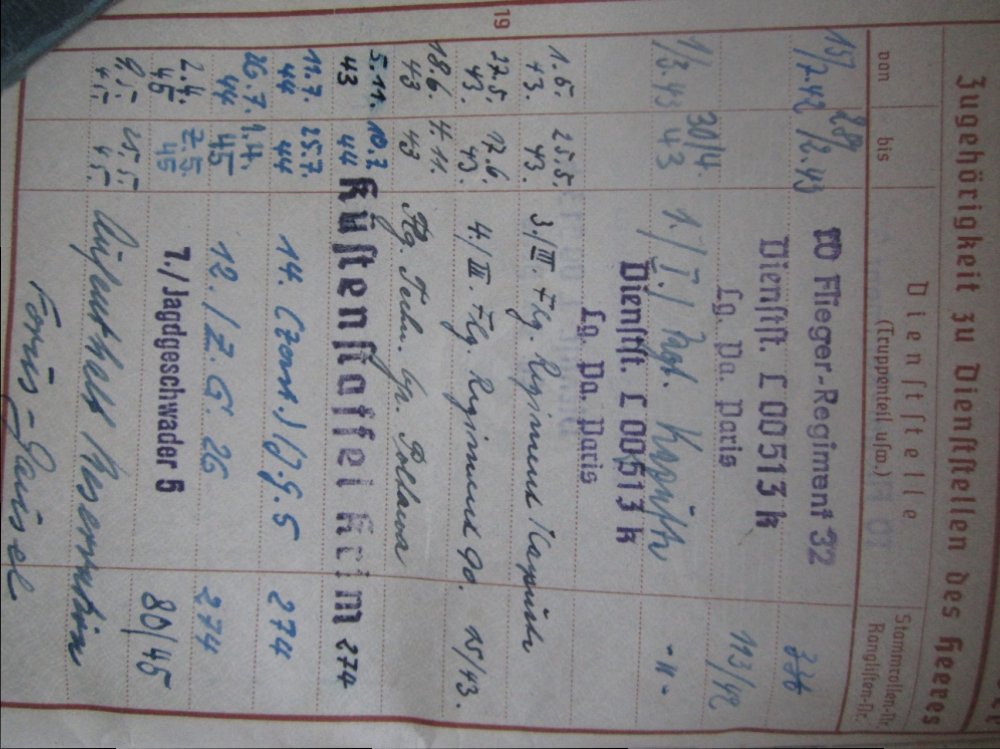 19
Zugehörigkeit zu Dienststellen des Heeres
von
bis
Dienststelle
(Truppenteil usw.)
Stammrollen-Nr.
Ranglisten-Nr.
15/7.42 28/2.43 10 Fliegser-Regiment 32 326
Dienstst. L 00513 K
Lg. Pa. Paris 113/42
1/3.43 30/4. 43 1./I./ -"-
Dienstst. L 00513 K
Lg. Pa. Paris
1.5. 43. 25.5. 43. 3./III. Flg. Regiment
27.5. 43. 17.6. 43. 4./III. Flg. Regiment 90. 15/43.
18.6. 43 4.11. 43 Flg. Techn.
5.11. 43 10.7. 44 Küstenstaffel Krim 274
11.7. 44 25.7. 44 14. (Zerst.) J.G. 5 274
26.7. 44 1.4. 45 12./Z.G. 26 274
2.4. 45 7.5. 45 7./Jagdgeschwader 5 80/45
9.5. 45. 25.5. 45. Aufenthalt Reservation